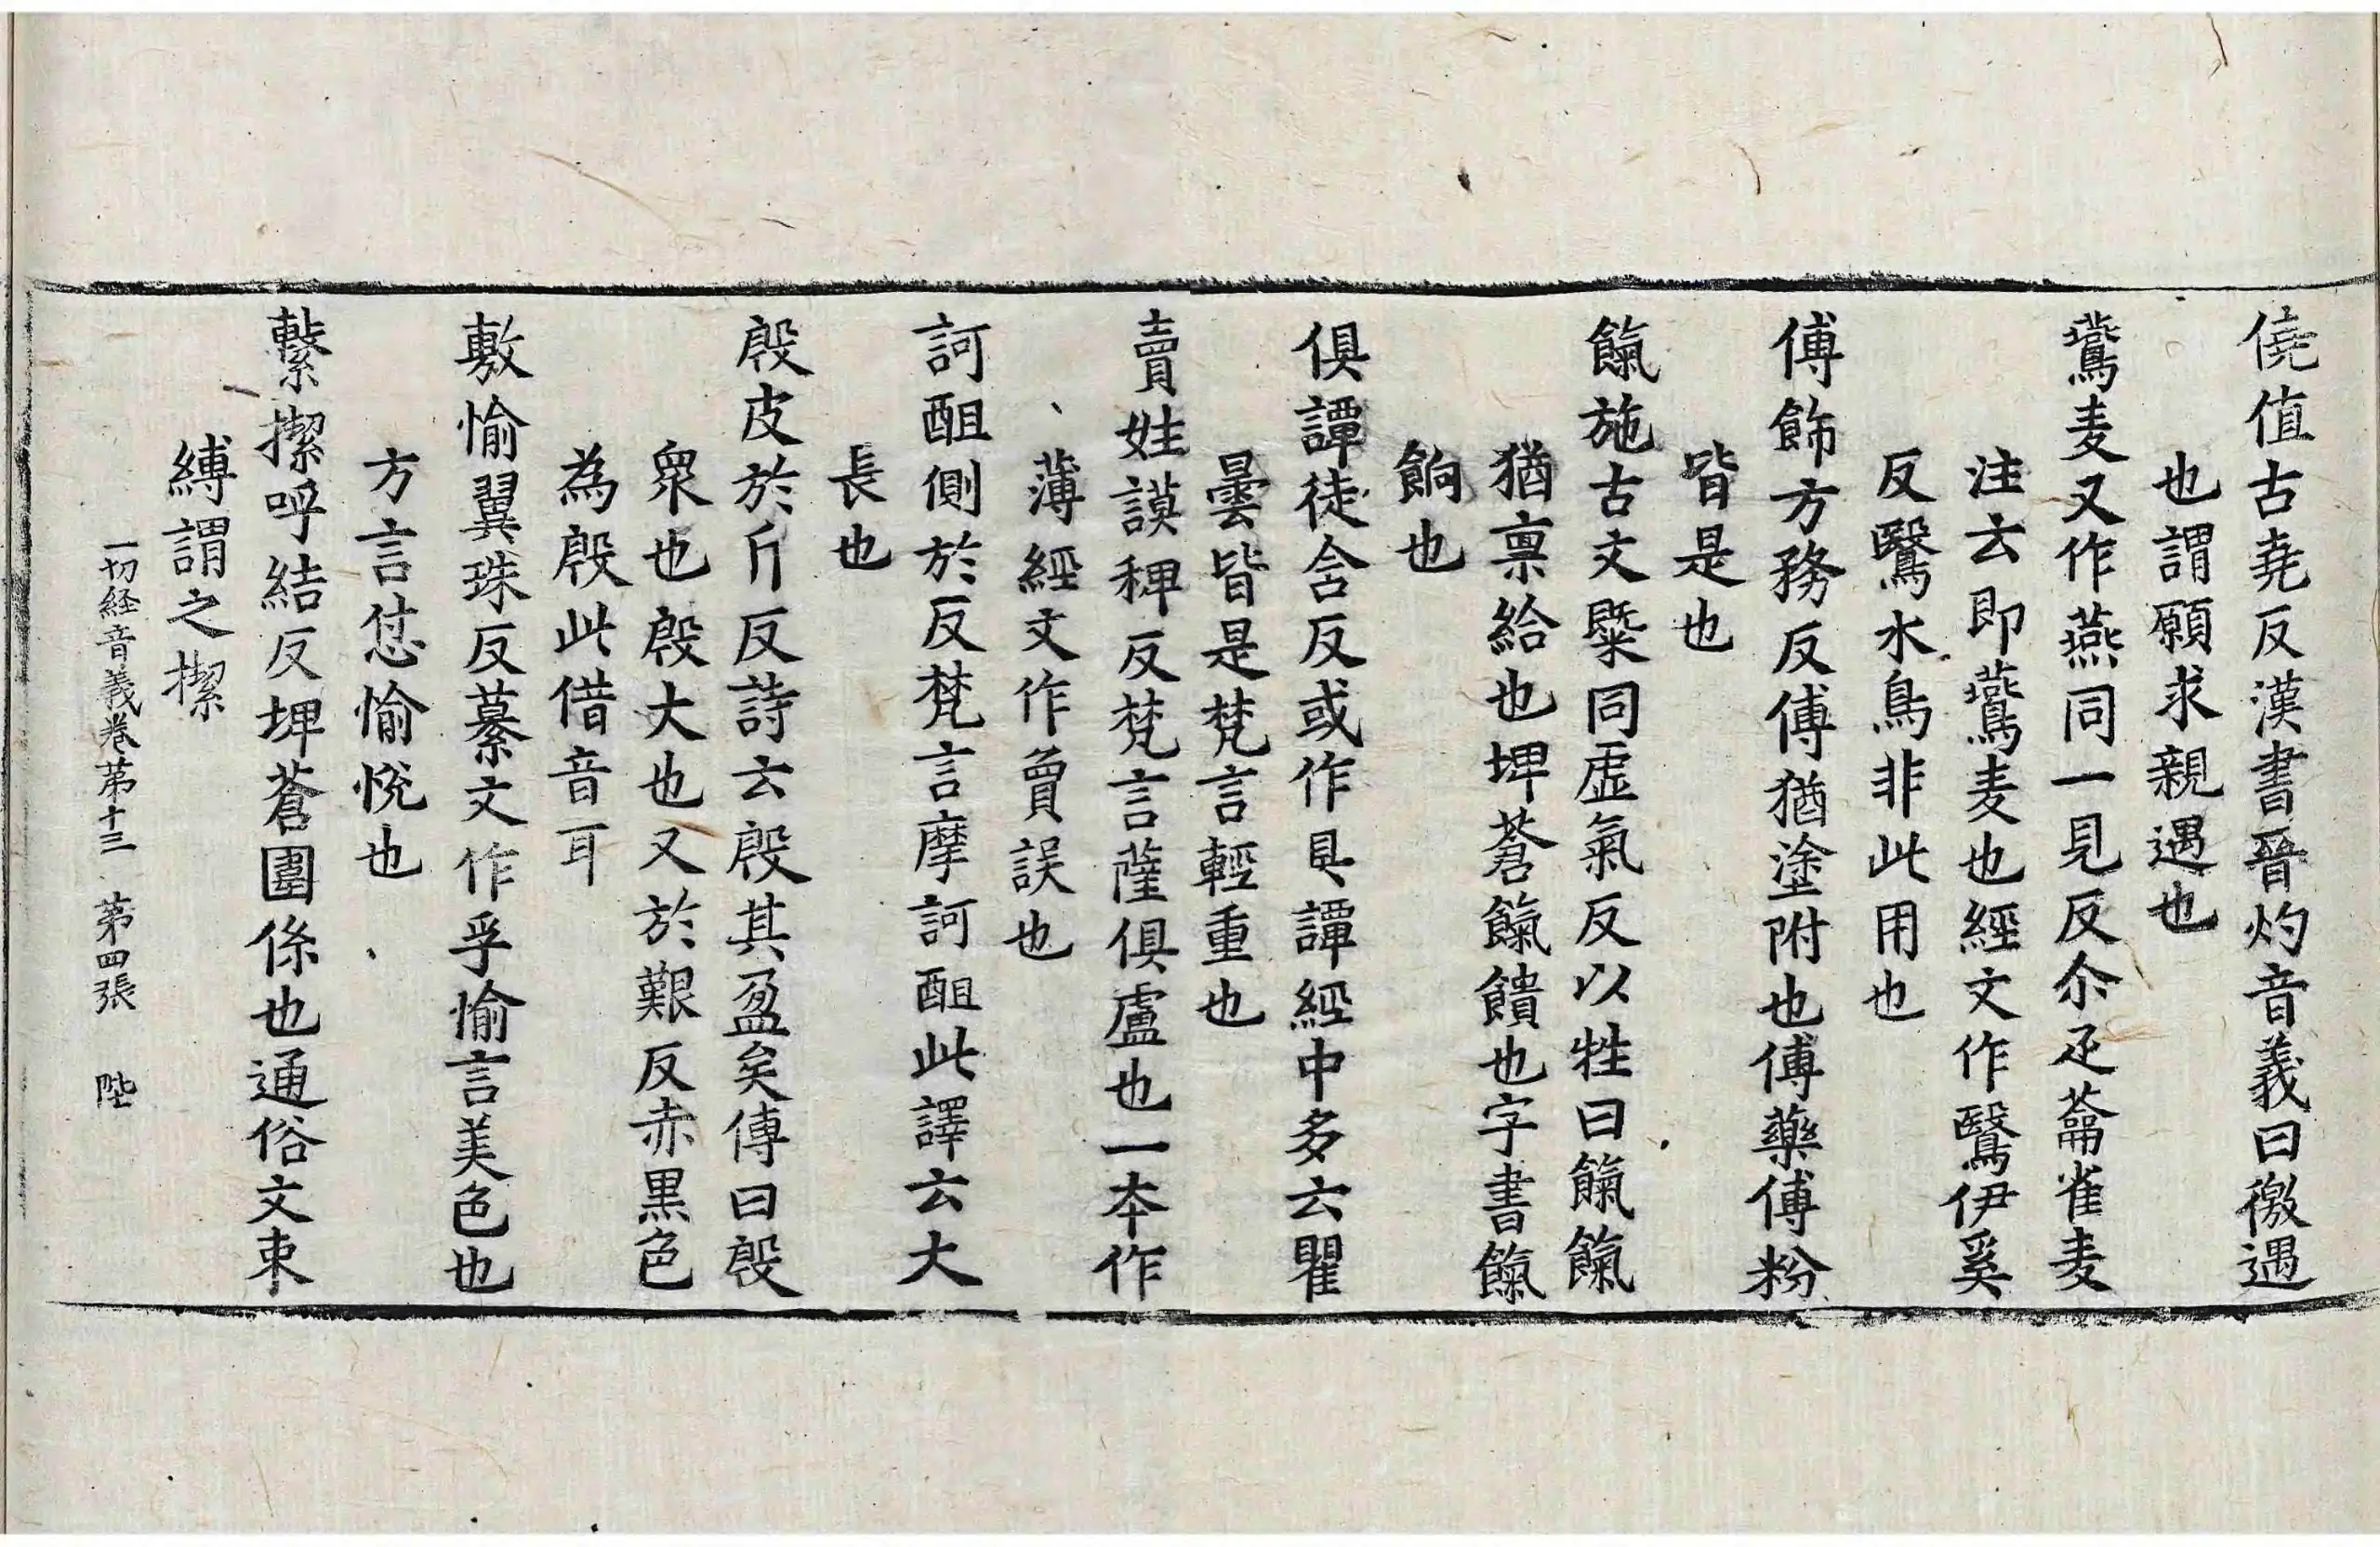 僥值古堯反漢書晉灼音義曰徼遇
也謂願求親遇也
鷰麦又作燕同一見反尒疋蘥雀麦
注云即鷰麦也經文作鷖伊奚
反鷖水鳥非此用也
傅飾方務反傅猶塗附也傅藥傅粉
皆是也
餼施古文槩同虛氣反以牲曰餼餼
猶禀給也埤蒼餼饋也字書餼
餉也
俱譚徒含反或作具譚經中多云瞿
曇皆是梵言輕重也
賣姓謨稗反梵言薩俱盧也一本作
薄經文作𧶠誤也
訶䣯側於反梵言摩訶䣯此譯云大
長也
殷皮於斤反詩云殷其盈矣傳曰殷
眾也殷大也又於艱反赤黒色
為殷此借音耳
敷愉翼珠反纂文作孚愉言美色也
方言怤愉悅也
繫㩪呼結反埤蒼圍係也通俗文束
縛謂之㩪
一切経音義卷苐十三 苐四張 陛